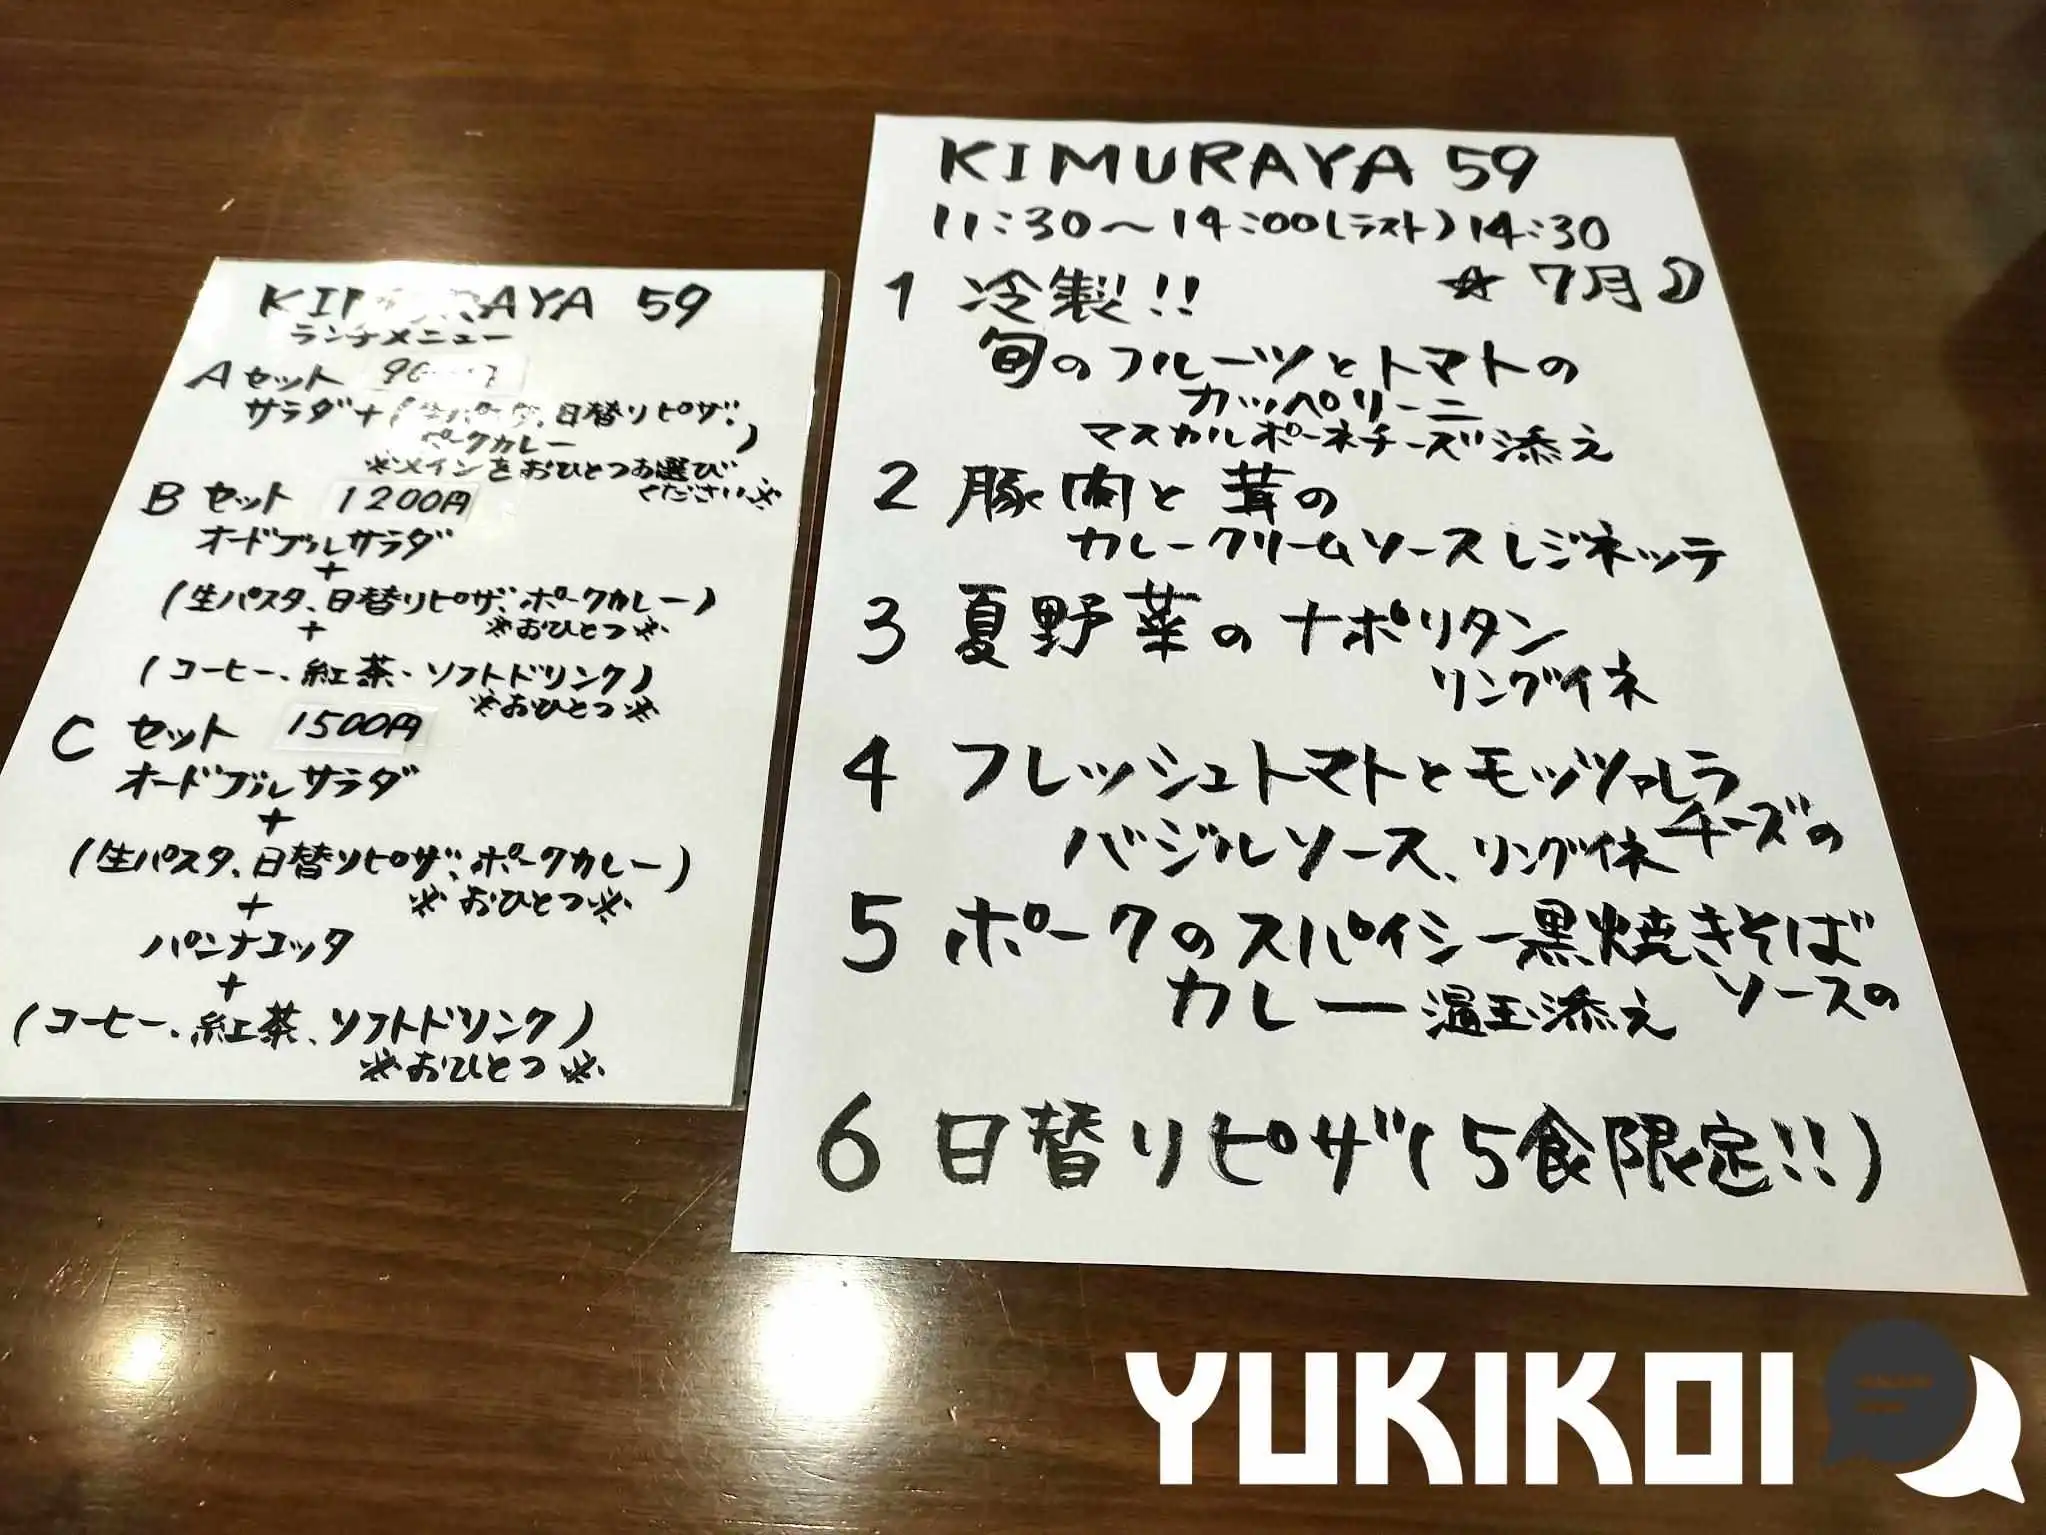 KIMURAYA 59
ランチメニュー
Aセット
サラダ+(生パスタ、日替りピザ、
ポークカレー)
※メインをおひとつお選び
ください※
Bセット 1200円
オードブルサラダ
+
(生パスタ、日替りピザ、ポークカレー)
+ ※おひとつ※
(コーヒー、紅茶、ソフトドリンク)
※おひとつ※
Cセット 1500円
オードブルサラダ
+
(生パスタ、日替りピザ、ポークカレー)
+ ※おひとつ※
パンナコッタ
+
(コーヒー、紅茶、ソフトドリンク)
※おひとつ※
KIMURAYA 59
11:30〜14:00(ラスト)14:30
☆7月
1 冷製!!
旬のフルーツとトマトの
カッペリーニ
マスカルポーネチーズ添え
2 豚肉と茸の
カレークリームソース レジネッテ
3 夏野菜のナポリタン
リングイネ
4 フレッシュトマトとモッツァレラ
チーズの
バジルソース、リングイネ
5 ポークのスパイシー黒焼きそば
ソースの
カレー 温玉添え
6 日替りピザ(5食限定!!)
YUKIKOI